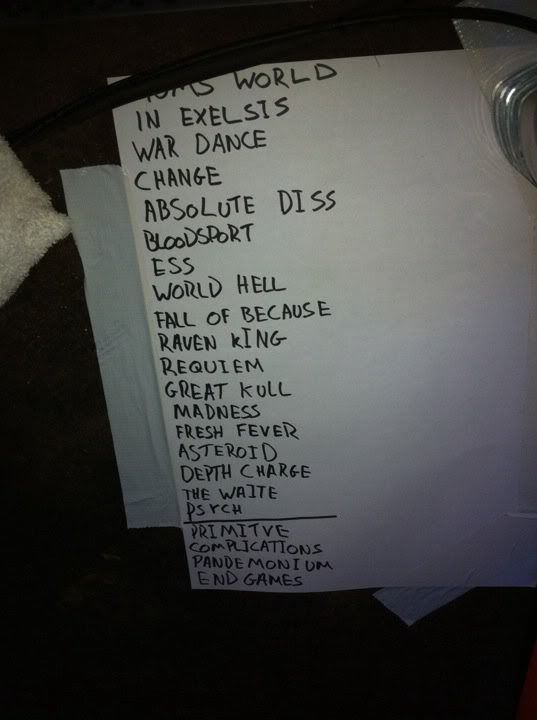 TOMS WORLD
IN EXELSIS
WAR DANCE
CHANGE
ABSOLUTE DISS
BLOODSPORT
ESS
WORLD HELL
FALL OF BECAUSE
RAVEN KING
REQUIEM
GREAT KULL
MADNESS
FRESH FEVER
ASTEROID
DEPTH CHARGE
THE WAITE
PSYCH
PRIMITVE
COMPLICATIONS
PANDEMONIUM
END GAMES